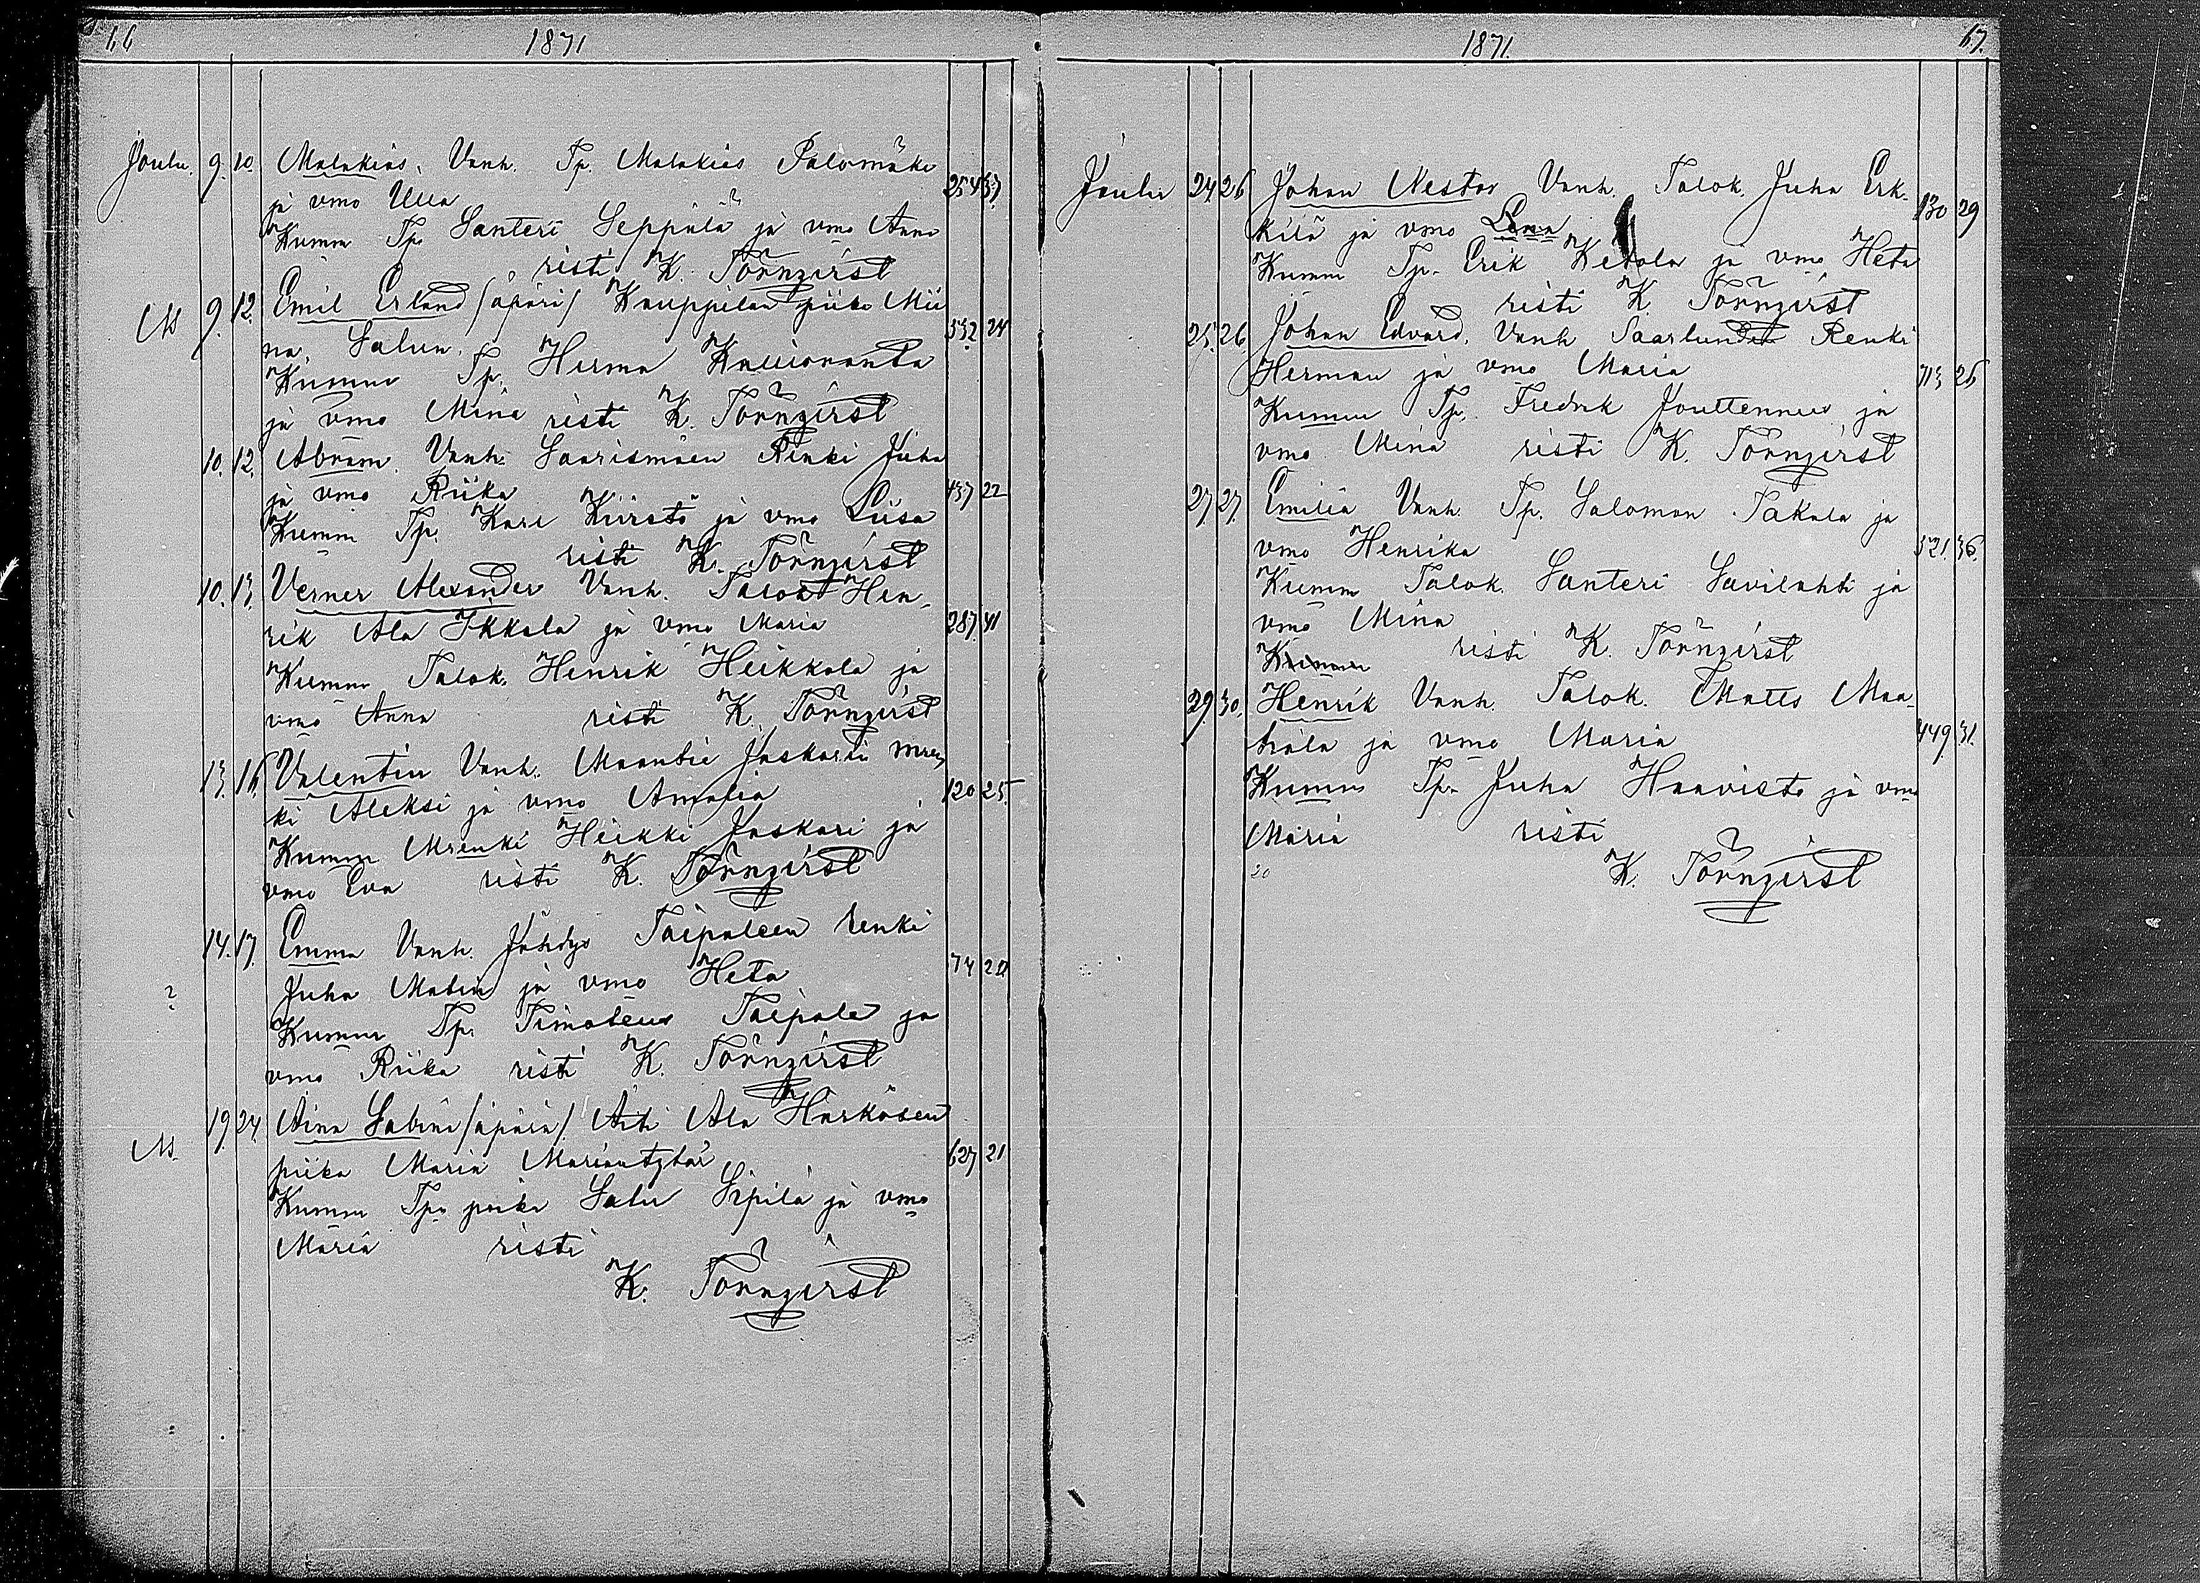 66 1871
Joulu. 9. 10. Malakias, Vanh. Tp. Malakias Palomäki
ja vmo Ulla 254 37.
Kumm Tp. Santeri Seppälä ja vmo Anna
risti K. Törnqvist
Ns 9. 12. Emil Erland /äpärä/ Knuppelan piika Mii
na Salun. 532 24
Kumm Tp. Herma Kallioranta
ja vmo Mina risti K. Törnqvist
10. 12. Abram. Vanh. Saarismäen Renki Juha
ja vmo Riika 437 22
Kumm Tp. Karl Kiirstö ja vmo Liisa
risti K. Törnqvist
10. 13. Verner Alexander Vanh. Talok Hen-
rik Ala Ikkala ja vmo Maria 287. 41
Kumm Talok. Henrik Heikkola ja
vmo Anna risti K. Törnqvist
13. 16. Valentin Vanh. Maantie Jaskarin mren
ki Aleksi ja vmo Amalia 120 25.
Kumm Mrenki Heikki Jaskari ja
vmo Eva risti K. Törnqvist
14. 17. Emma Vanh. Jähdys Taipaleen renki
Juha Matin ja vmo Heta 74 22
?
Kumm Tp. Timoteus Taipale ja
vmo Riika risti K. Törnqvist
19. 24. Aina Sabina /äpärä/ Äiti Ala Härkösen
Ns. piika Maria Mariantytär 627 21
Kumm Tp. poika Salu Sipilä ja vmo
Maria risti
K. Törnqvist
1871. 67.
Joulu 24. 26 Johan Nestor Vanh. Talok. Juha Erk-
kilä ja vmo Lena 130 29
Kumm Tp. Erik Ketola ja vmo Heta
risti K. Törnqvist
25. 26. Johan Edvard. Vanh Saarlundin Renki
Herman ja vmo Maria 713 26
Kumm Tp. Fredrik Jouttennus ja
vmo Mina risti K. Törnqvist
27. 27. Emilia Vanh. Tp. Salomon Takala ja
vmo Henrika 321. 36.
Kumm Talok. Santeri Savilahti ja
vmo Mina
Kumm risti K. Törnqvist
29. 30. Henrik Vanh. Talok. Matts Maa-
hala ja vmo Maria 449. 31.
Kumm Tp. Juha Haavisto ja vmo
Maria risti
20 K. Törnqvist